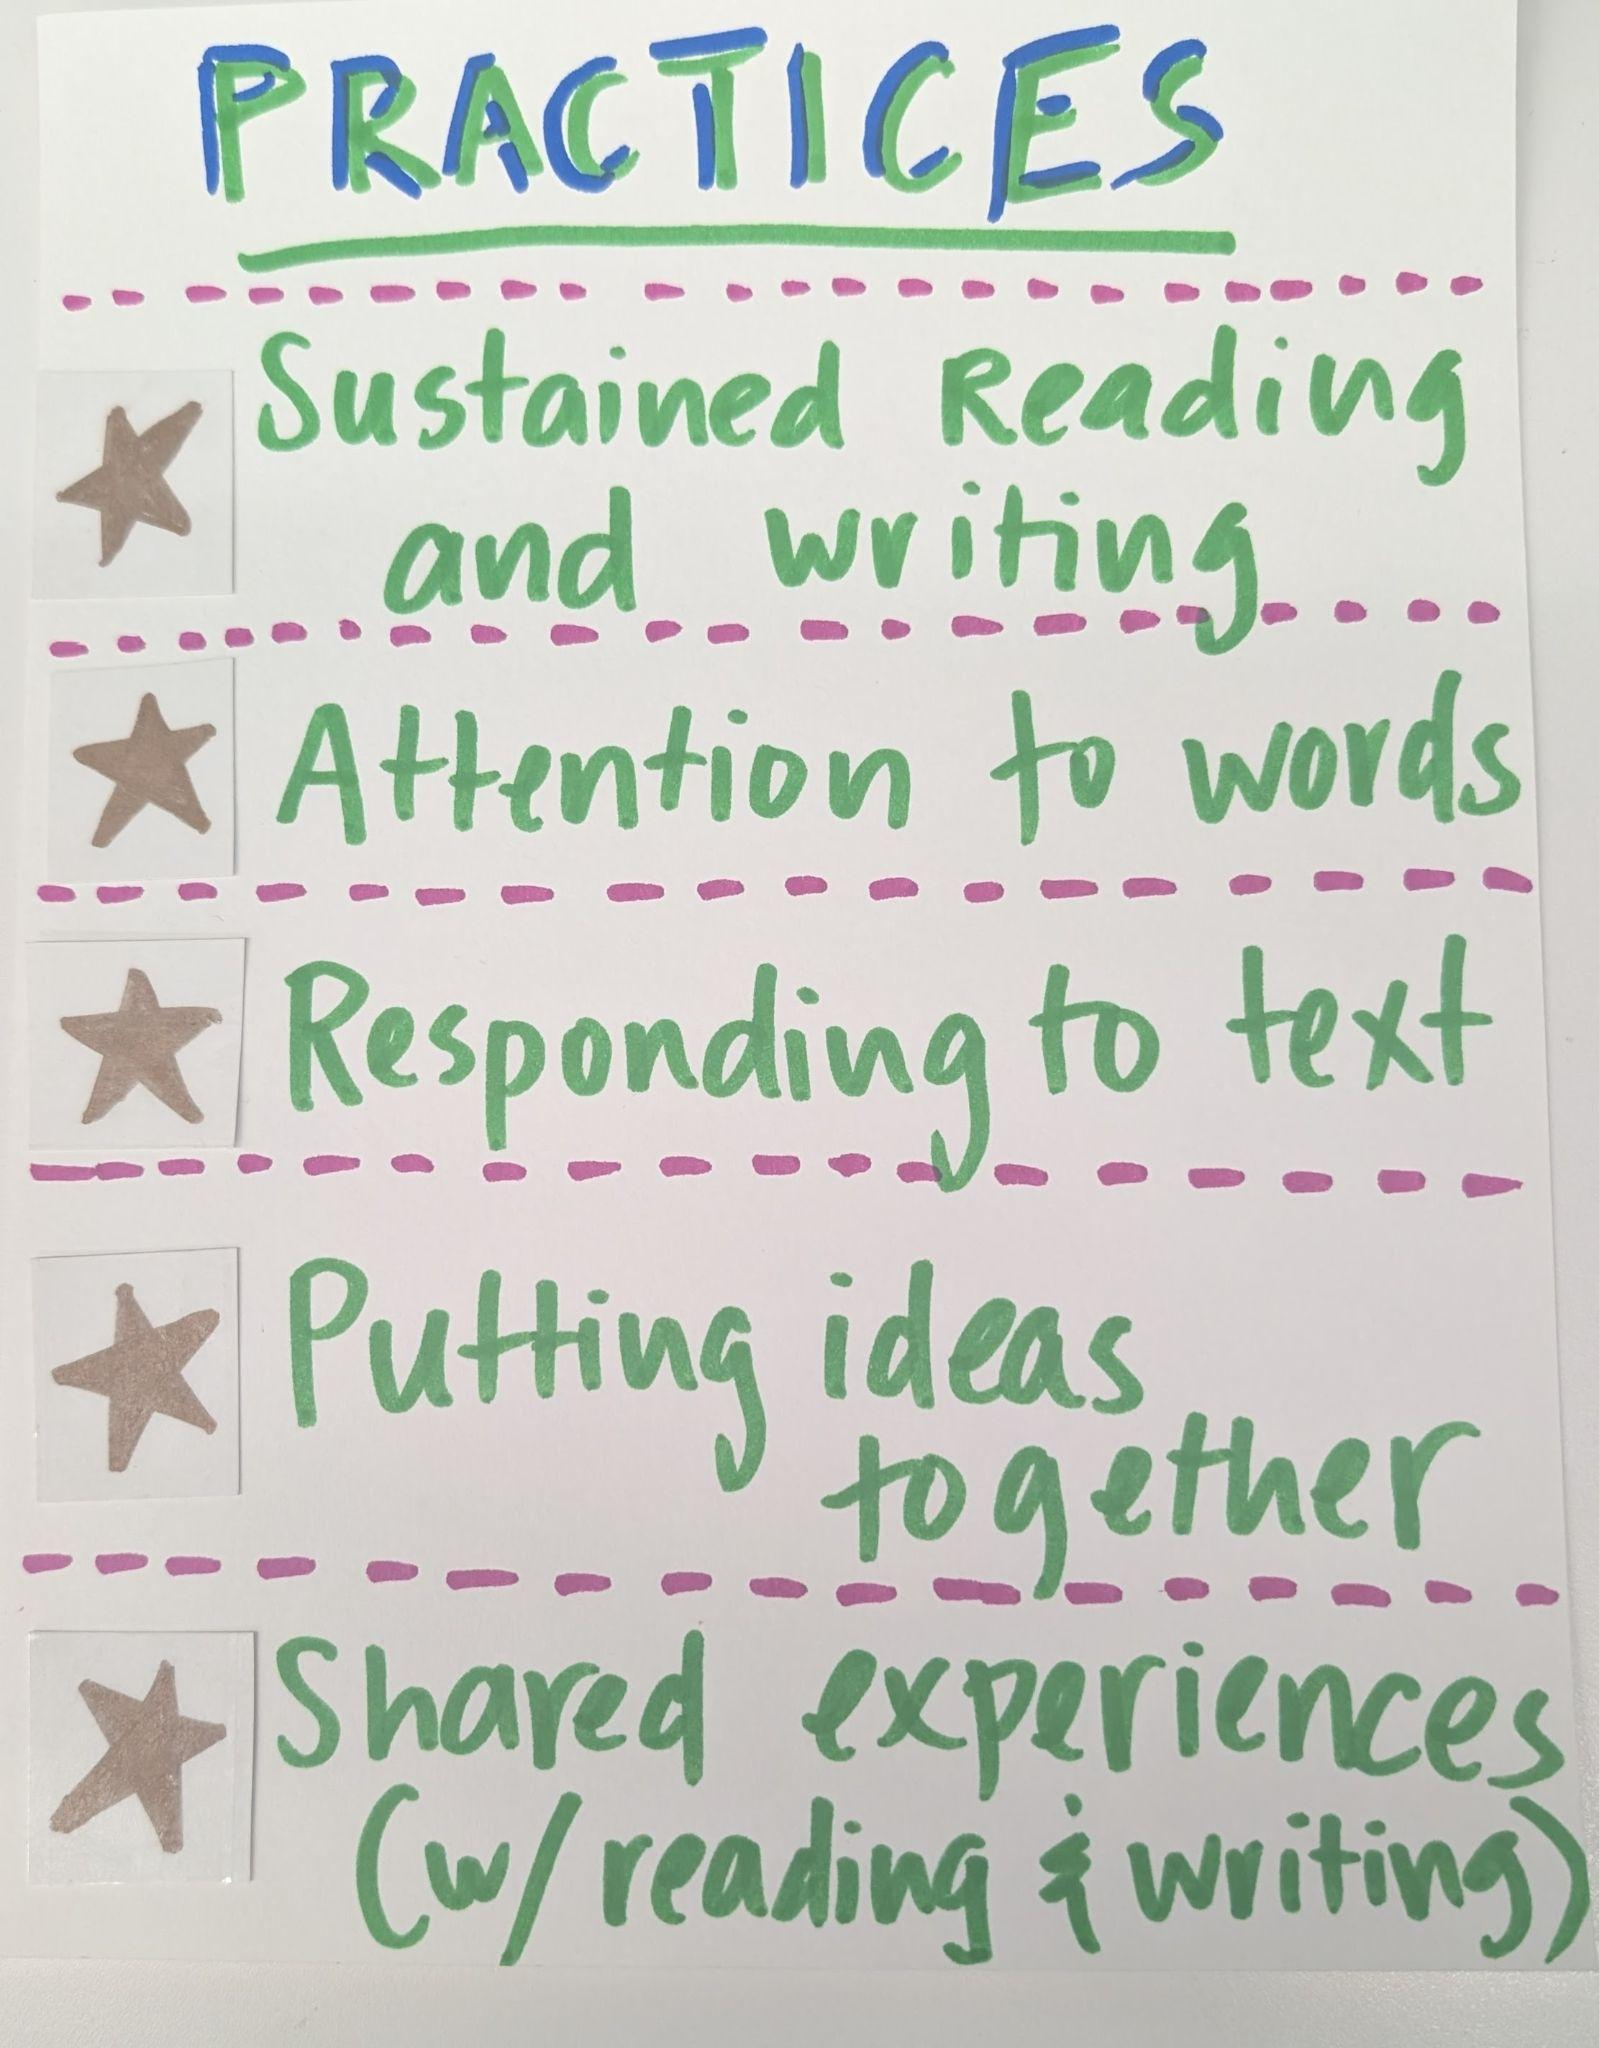 PRACTICES
Sustained Reading
and writing
Attention to words
Responding to text
Putting ideas
together
Shared experiences
(w/reading & writing)